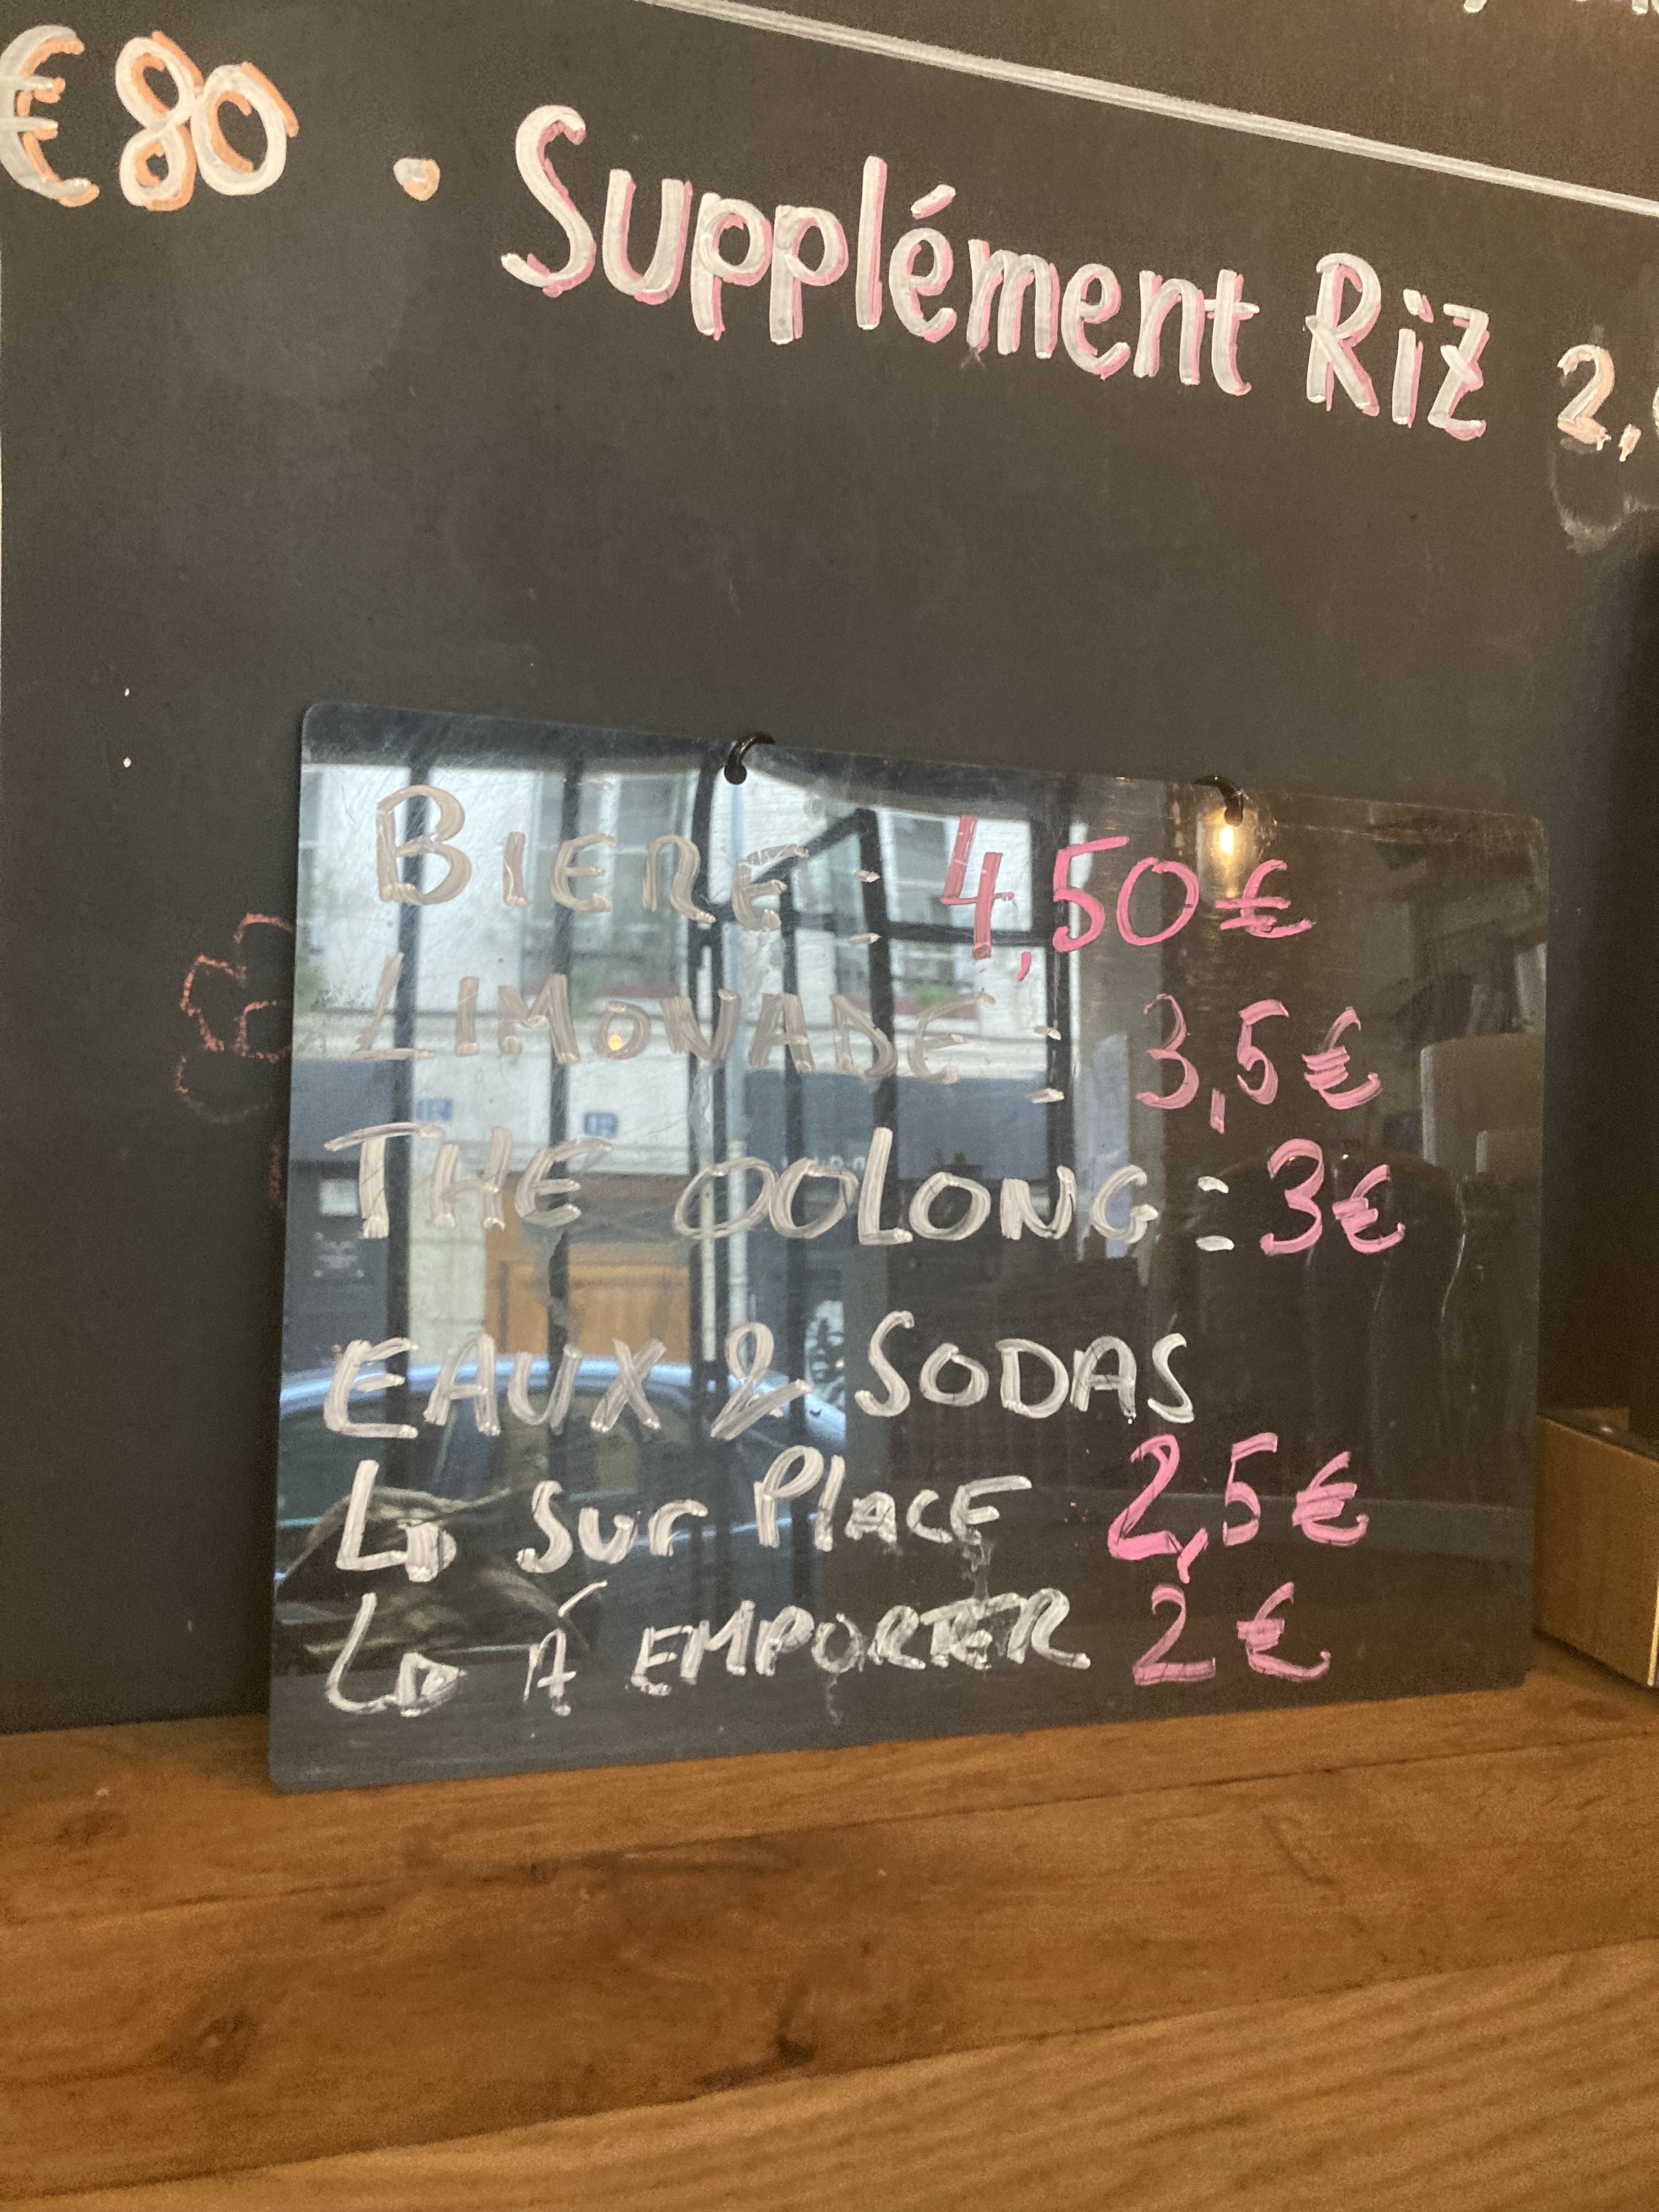 €80 . Supplément Riz 2,
BIERE : 4,50€
LIMONADE : 3,5€
THE OOLONG : 3€
EAUX & SODAS
SUr PlACE 2,5€
Á EMPORTER 2€